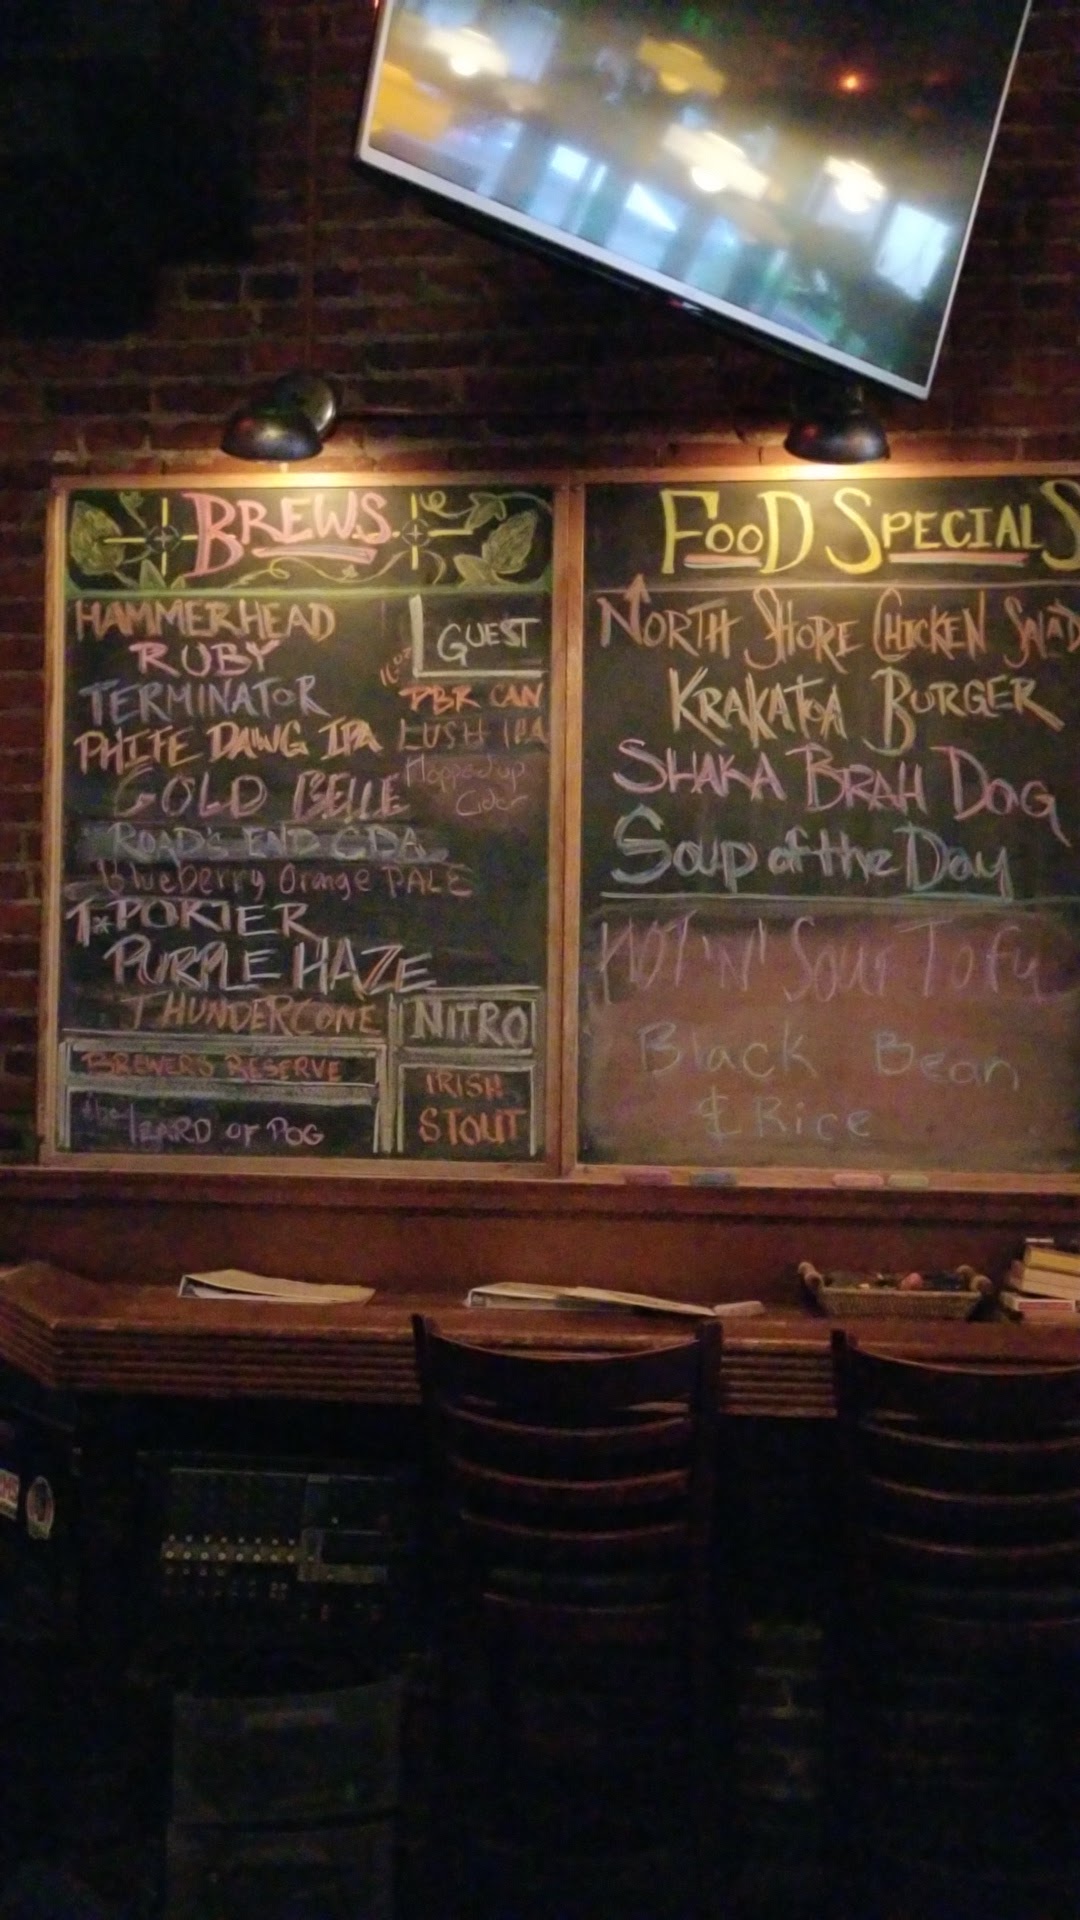 BREWS
HAMMERHEAD
RUBY
TERMINATOR
PHIFE DAWG IPA
GOLD BELLE
ROAD'S END CDA
blueberry Orange PALE
T*PORTER
PURPLE HAZE
THUNDERCONE
BREWERS RESERVE
IZARD OF POG
GUEST
16oz
PBR CAN
LUSH IPA
Hopped up
Cider
NITRO
IRISH
STOUT
FOOD SPECIALS
NORTH SHORE CHICKEN SALAD
KRAKATOA BURGER
SHAKA BRAH DOG
Soup of the Day
HOT 'N' Sour Tofu
Black Bean
& Rice